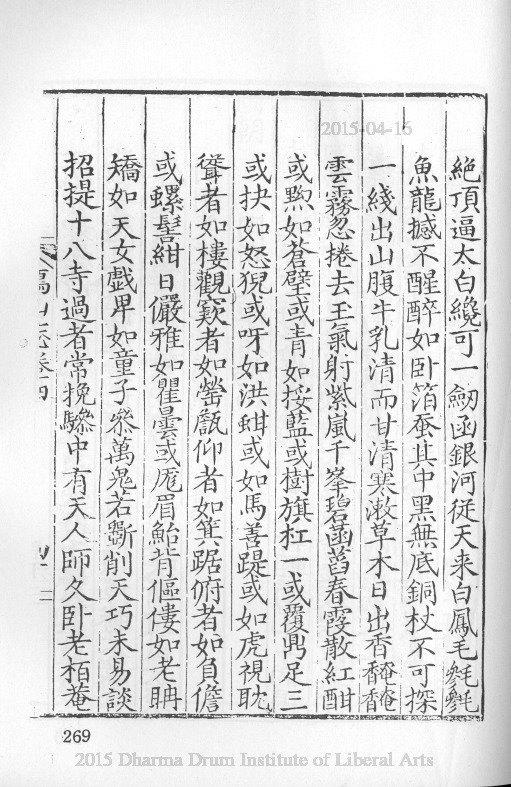 2015-04-16
絶頂逼太白纔可一劒函銀河從天来白鳳毛毿毿
魚龍撼不醒醉如卧箔蚕其中黑無底銅杖不可探
一綫出山腹牛乳清而甘清寒漱草木日出香馣馣
雲霧忽捲去王氣射紫嵐千峯碧菡萏春霞散紅酣
或黝如蒼壁或青如挼藍或樹旗杠一或覆鼎足三
或抉如怒猊或呀如洪蚶或如馬善踶或如虎視眈
聳者如樓觀窾者如罃甔仰者如箕踞俯者如負儋
或螺髻紺日儼雅如瞿曇或厖眉鮐背傴僂如老聃
矯如天女戯畀如童子叅萬鬼若斵削天巧未易談
招提十八寺過者常挽驂中有天人師久卧老栢菴
山志卷四
269
2015 Dharma Drum Institute of Liberal Arts